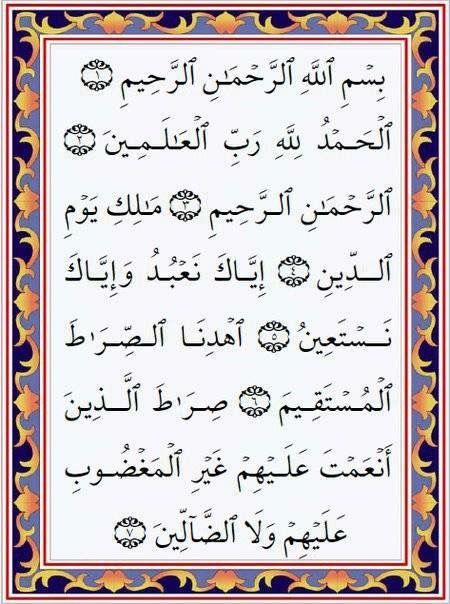 بِسْمِ ٱللَّهِ ٱلرَّحْمَـٰنِ ٱلرَّحِيمِ ١
ٱلْحَمْدُ لِلَّهِ رَبِّ ٱلْعَـٰلَمِينَ ٢
ٱلرَّحْمَـٰنِ ٱلرَّحِيمِ ٣ مَـٰلِكِ يَوْمِ
ٱلدِّينِ ٤ إِيَّاكَ نَعْبُدُ وَإِيَّاكَ
نَسْتَعِينُ ٥ ٱهْدِنَا ٱلصِّرَٰطَ
ٱلْمُسْتَقِيمَ ٦ صِرَٰطَ ٱلَّذِينَ
أَنْعَمْتَ عَلَيْهِمْ غَيْرِ ٱلْمَغْضُوبِ
عَلَيْهِمْ وَلَا ٱلضَّآلِّينَ ٧